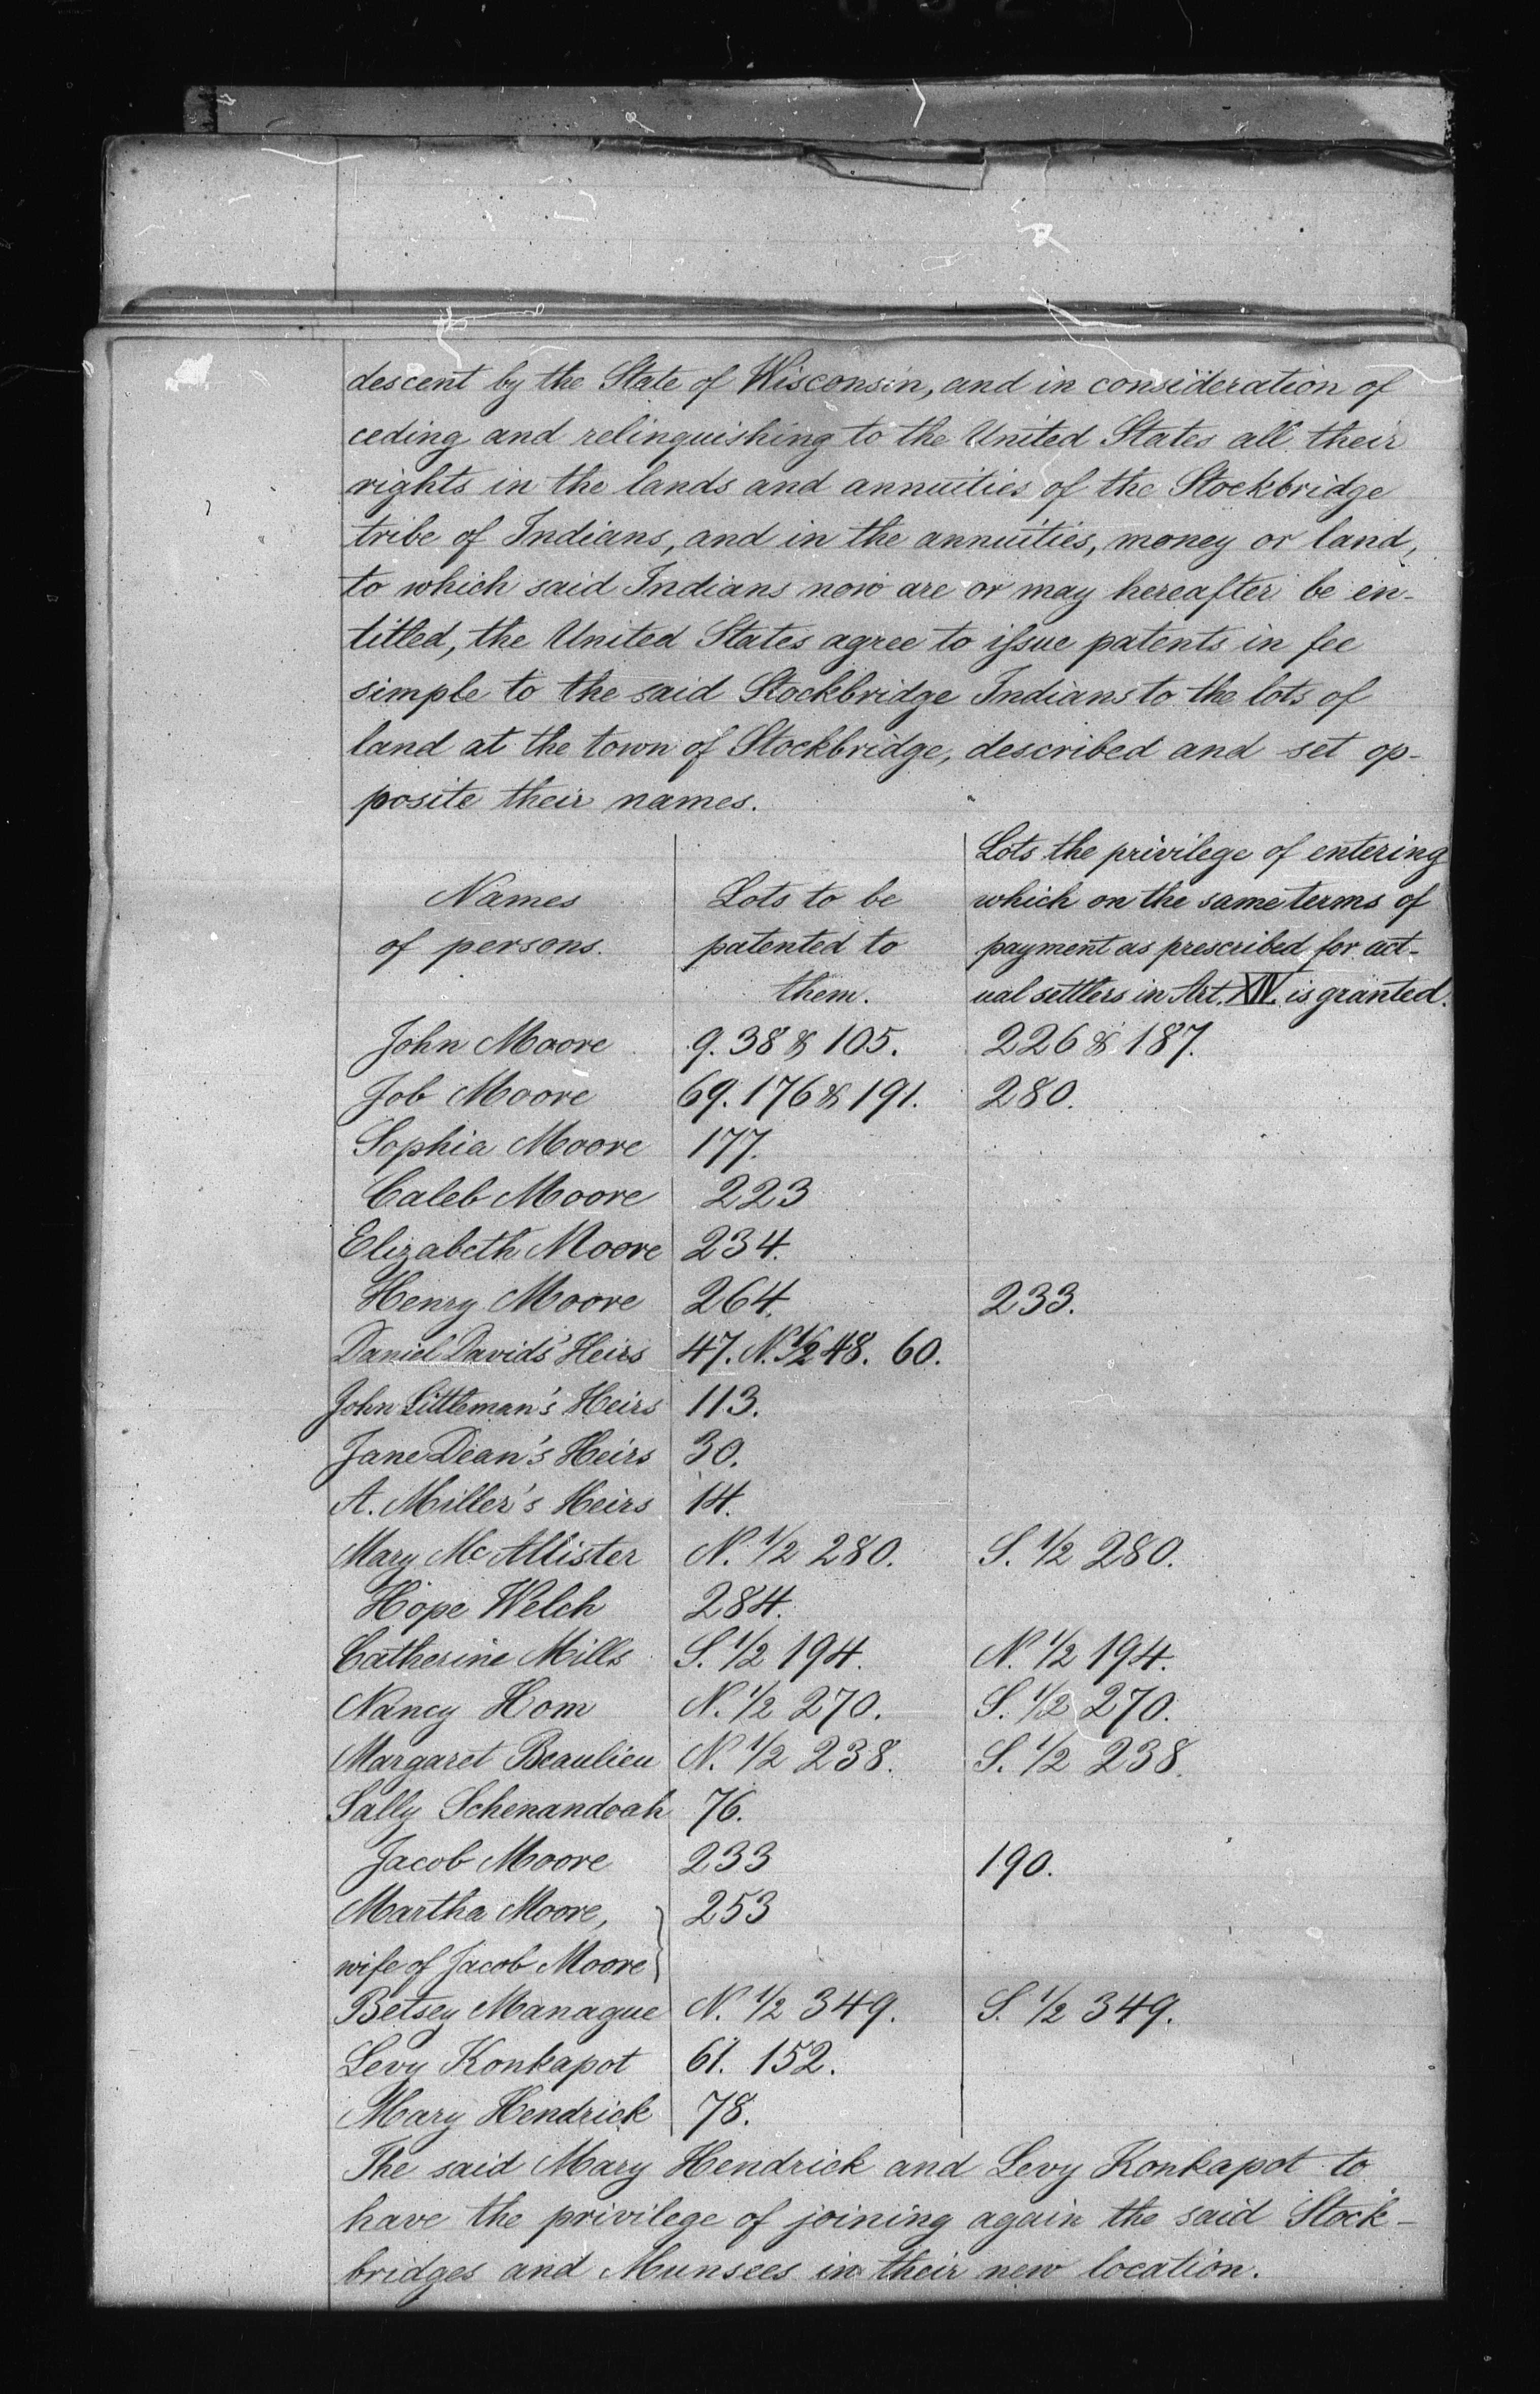 descent by the State of Wisconsin, and in consideration of
ceding and relinquishing to the United States all their
rights in the lands and annuities of the Stockbridge
tribe of Indians, and in the annuities, money or land,
to which said Indians now are or may hereafter be en-
titled, the United States agree to issue patents in fee
simple to the said Stockbridge Indians to the lots of
land at the town of Stockbridge, described and set op-
posite their names.
Names of persons. | Lots to be patented to them. | Lots the privilege of entering
which on the same terms of
payment as prescribed for act-
ual settlers in Art. XIV. is granted.
John Moore 9. 38 & 105. 226 & 187.
Job Moore 69. 176 & 191. 280.
Sophia Moore 177.
Caleb Moore 223
Elizabeth Moore 234.
Henry Moore 264. 233.
Daniel Davids' Heirs 47. N. 1/2 48. 60.
John Littleman's Heirs 113.
Jane Dean's Heirs 30.
A. Miller's Heirs 14.
Mary McAllister N. 1/2 280. S. 1/2 280.
Hope Welch 284.
Catherine Mills S. 1/2 194. N. 1/2 194.
Nancy Hom N. 1/2 270. S. 1/2 270.
Margaret Beaulieu N. 1/2 238. S. 1/2 238.
Sally Schenandoah 76.
Jacob Moore 233 190.
Martha Moore, 253
wife of Jacob Moore
Betsey Manague N. 1/2 349. S. 1/2 349.
Levy Konkapot 61. 152.
Mary Hendrick 78.
The said Mary Hendrick and Levy Konkapot to
have the privilege of joining again the said Stock-
bridges and Munsees in their new location.